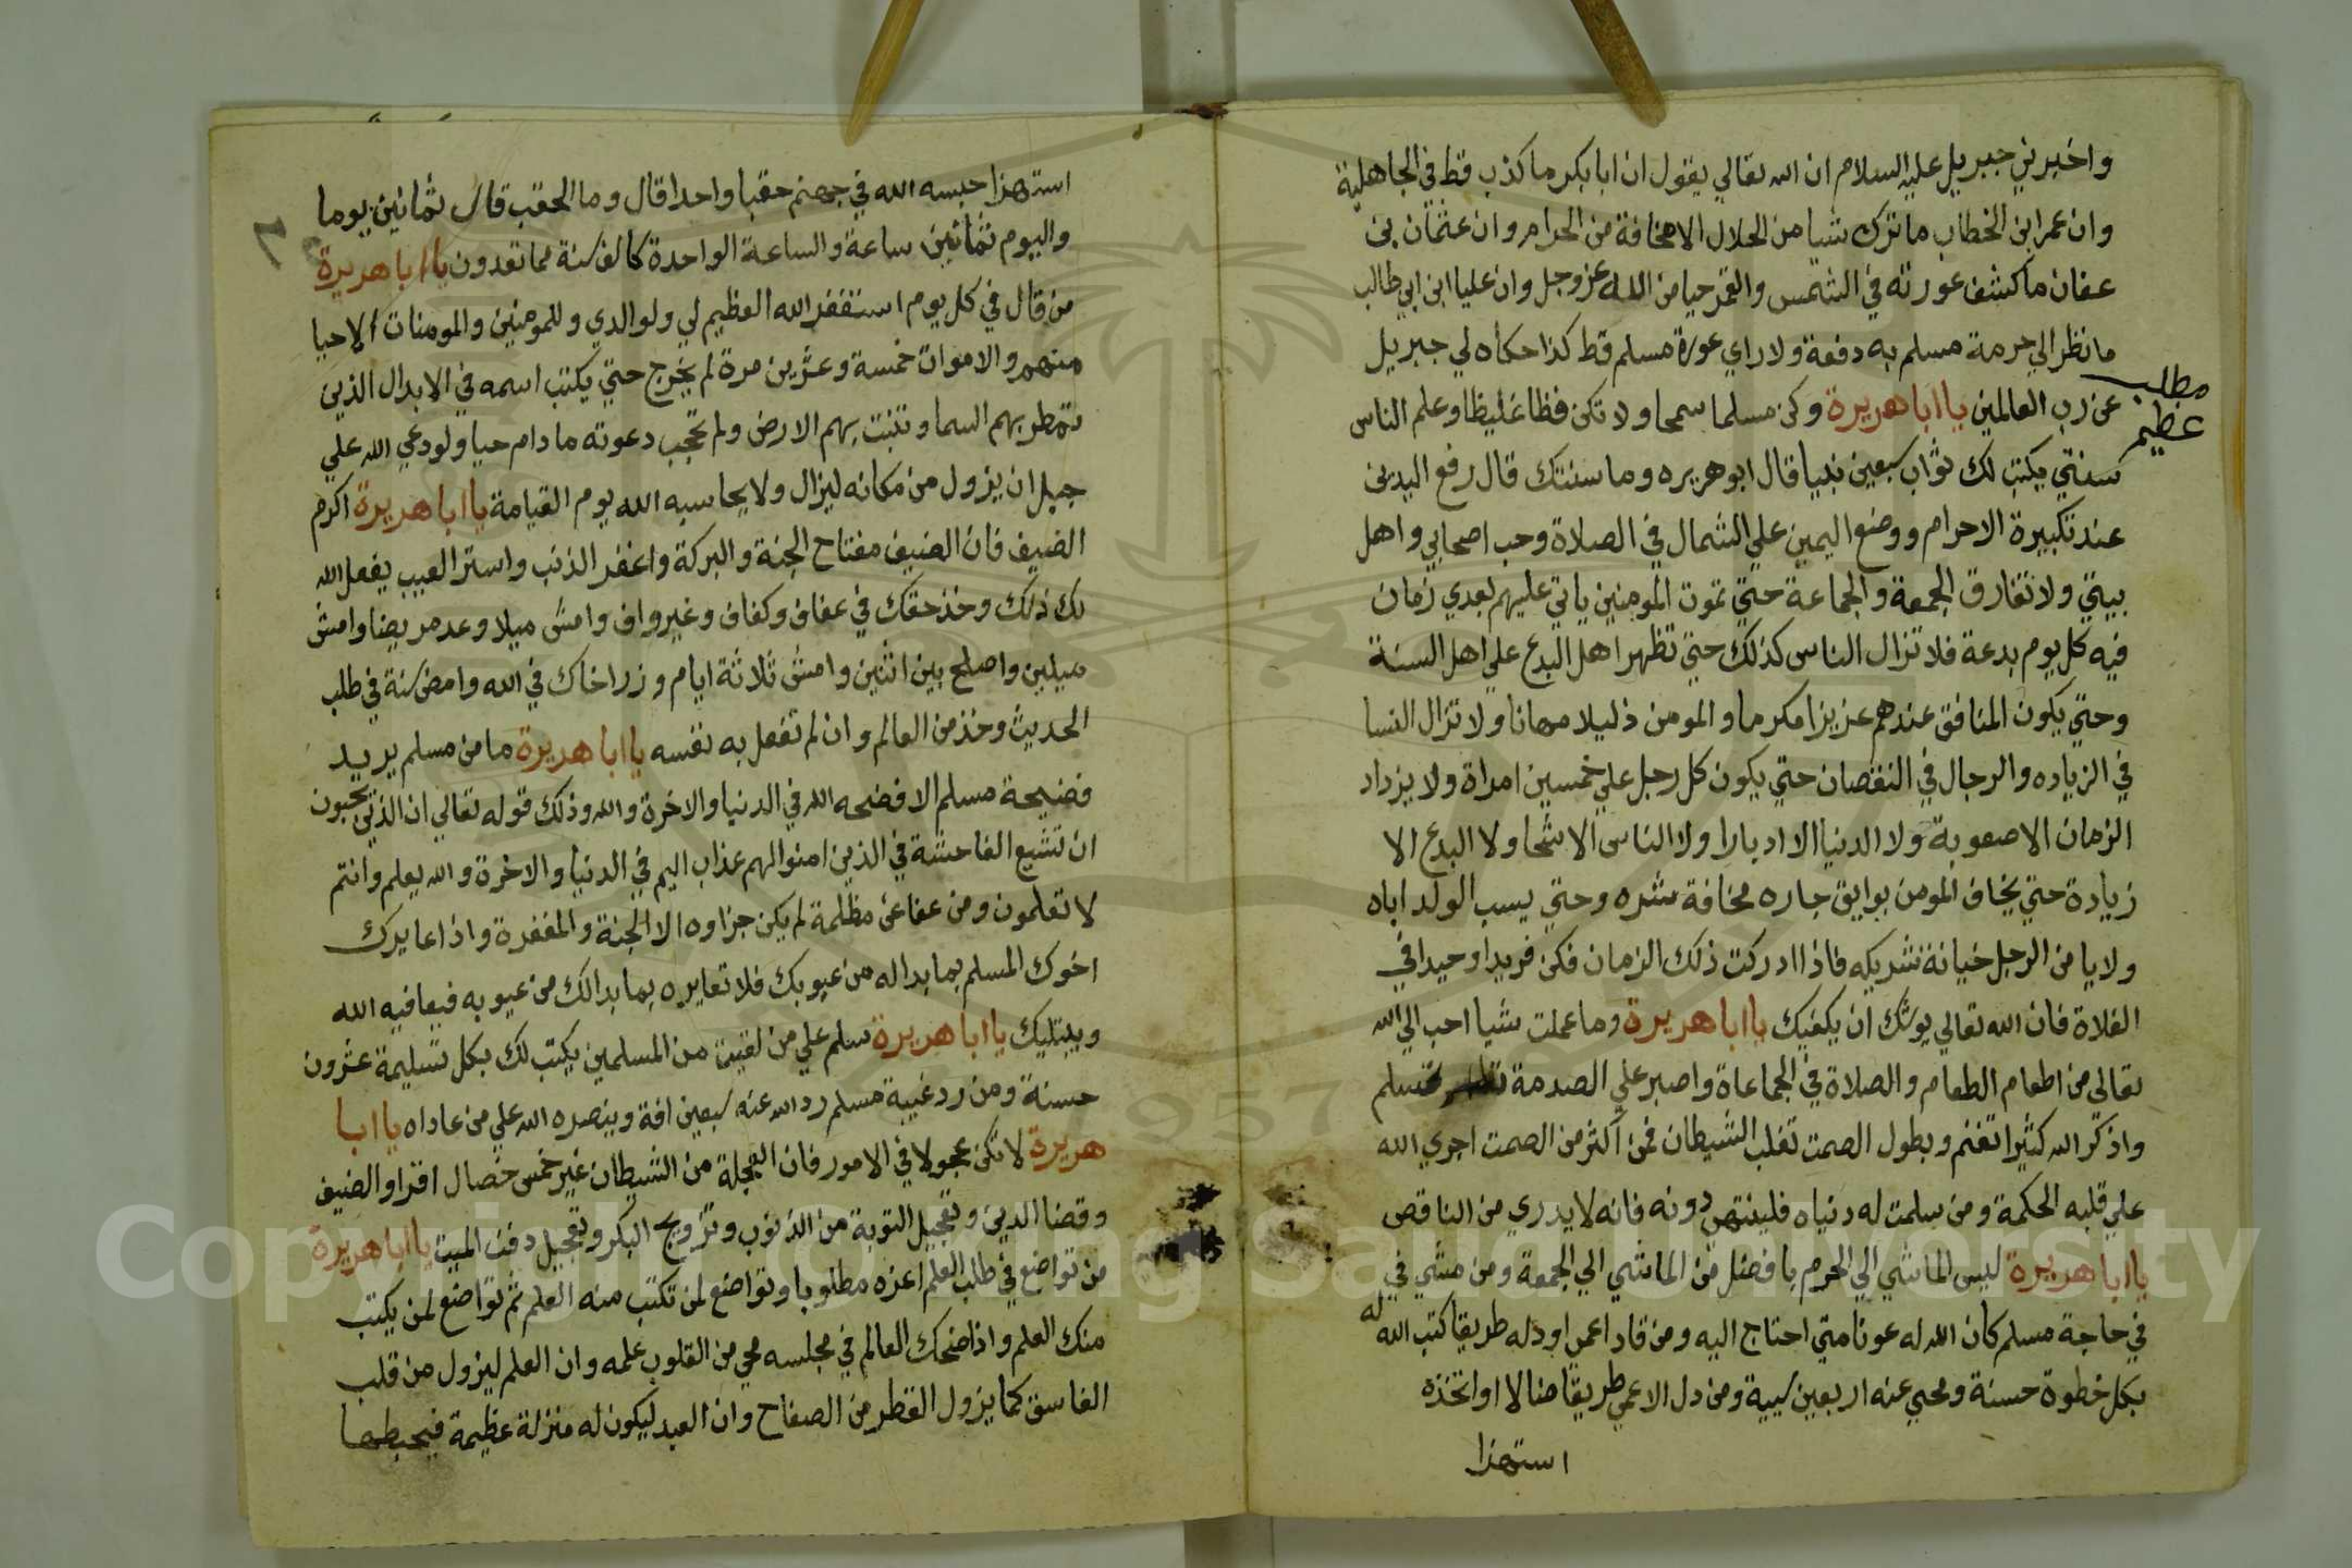 واخبرني جبريل عليه السلام ان الله تعالي يقول ان ابا بكر ما كذب قط في الجاهلية
وان عمر ابن الخطاب ما ترك شيا من الحلال الا مخافة من الحرام وان عثمان بن
عفان ما كشف عورته في الشمس والقمر حيا من الله عز وجل وان عليا ابن ابي طالب
ما نظر الي حرمة مسلم به دفعة ولا راي عورة مسلم قط كذا حكاه لي جبريل
مطلب
عظيم
عن رب العالمين يا ابا هريرة وكن مسلما سمحا ولا تكن فظا غليظا وعلم الناس
سنتي يكتب لك ثواب سبعين نبيا قال ابو هريره وما سنتك قال رفع اليدين
عند تكبيرة الاحرام ووضع اليمين علي الشمال في الصلاة وحب اصحابي واهل
بيتي ولا تفارق الجمعة والجماعة حتي تموت المومنين ياتي عليهم بعدي زمان
فيه كل يوم بدعة فلا تزال الناس كذلك حتي تظهر اهل البدع علي اهل السنة
وحتي يكون المنافق عندهم عزيزا مكرما والمومن ذليلا مهانا ولا تزال النسا
في الزياده والرجال في النقصان حتي يكون كل رجل علي خمسين امراة ولا يزداد
الزمان الا صعوبة ولا الدنيا الا ادبارا ولا الناس الا شحا ولا البدع الا
زيادة حتي يخاف المومن بوايق جاره مخافة شره وحتي يسب الولد اباه
ولا يامن الرجل خيانة شريكه فاذا ادركت ذلك الزمان فكن فريدا وحيدا في
الفلاة فان الله تعالي يوشك ان يكفيك يا ابا هريرة وما عملت شيا احب الي الله
تعالى من اطعام الطعام والصلاة في الجماعاة واصبر علي الصدمة تسلم
واذكر الله كثيرا تغنم وبطول الصمت تغلب الشيطان فمن اكثر من الصمت اجري الله
علي قلبه الحكمة ومن سلمت له دنياه فلينتهي دونه فانه لا يدري من الناقص
يا ابا هريرة ليس الماشي الي الحرم بافضل من الماشي الي الجمعة ومن مشي في
في حاجة مسلم كان الله له عونا متي احتاج اليه ومن قاد اعمي او دله طريقا كتب الله له
بكل خطوة حسنة ومحي عنه اربعين سيية ومن دل الاعمي طريقا ضالا او اتخذه
استهزا
استهزا حبسه الله في جهنم حقبا واحدا قال وما الحقب قال ثمانين يوما
واليوم ثمانين ساعة والساعة الواحدة كالف سنة مما تعدون يا ابا هريرة
من قال في كل يوم استغفر الله العظيم لي ولوالدي وللمومنين والمومنات الاحيا
منهم والاموات خمسة وعشرين مرة لم يخرج حتي يكتب اسمه في الابدال الذين
تمطر بهم السما وتنبت بهم الارض ولم تحجب دعوته ما دام حيا ولو دعي الله علي
جبل ان يزول من مكانه ليزال ولا يحاسبه الله يوم القيامة يا ابا هريرة اكرم
الضيف فان الضيف مفتاح الجنة والبركة واغفر الذنب واستر العيب يفعل الله
لك ذلك وخذ حقك في عفاف وكفاف وغير واف وامش ميلا وعد مريضا وامش
ميلين واصلح بين اثنين وامش ثلاثة ايام وزر اخاك في الله وامض سنة في طلب
الحديث وخذ من العالم وان لم تفعل به نفسه يا ابا هريرة ما من مسلم يريد
فضيحة مسلم الا فضحه الله في الدنيا والاخرة والله وذلك قوله تعالي ان الذين يحبون
ان تشيع الفاحشة في الذين امنوا لهم عذاب اليم في الدنيا والاخرة والله يعلم وانتم
لا تعلمون ومن عفا عن مظلمة لم يكن جزاوه الا الجنة والمغفرة واذا عايرك
اخوك المسلم بما بدا له من عيوبك فلا تعايره بما بدا لك من عيوبه فيعافيه الله
ويبتليك يا ابا هريرة سلم علي من لقيت من المسلمين يكتب لك بكل تسليمة عشرون
حسنة ومن رد غيبة مسلم رد الله عنه سبعين افة وينصره الله علي من عاداه يا ابا
هريرة لا تكن عجولا في الامور فان العجلة من الشيطان غير خمس خصال اقراو الضيف
وقضا الدين وتعجيل التوبة من الذنوب وتزويج البكر وتعجيل دفن الميت يا ابا هريرة
من تواضع في طلب العلم اعزه مطلوبا وتواضع لمن تكتب منه العلم ثم تواضع لمن يكتب
منك العلم واذا ضحك العالم في مجلسه محي من القلوب علمه وان العلم ليزول من قلب
الفاسق كما يزول القطر من الصفاح وان العبد ليكون له منزلة عظيمة فيحبطها
Copyright © King Saud University
1957